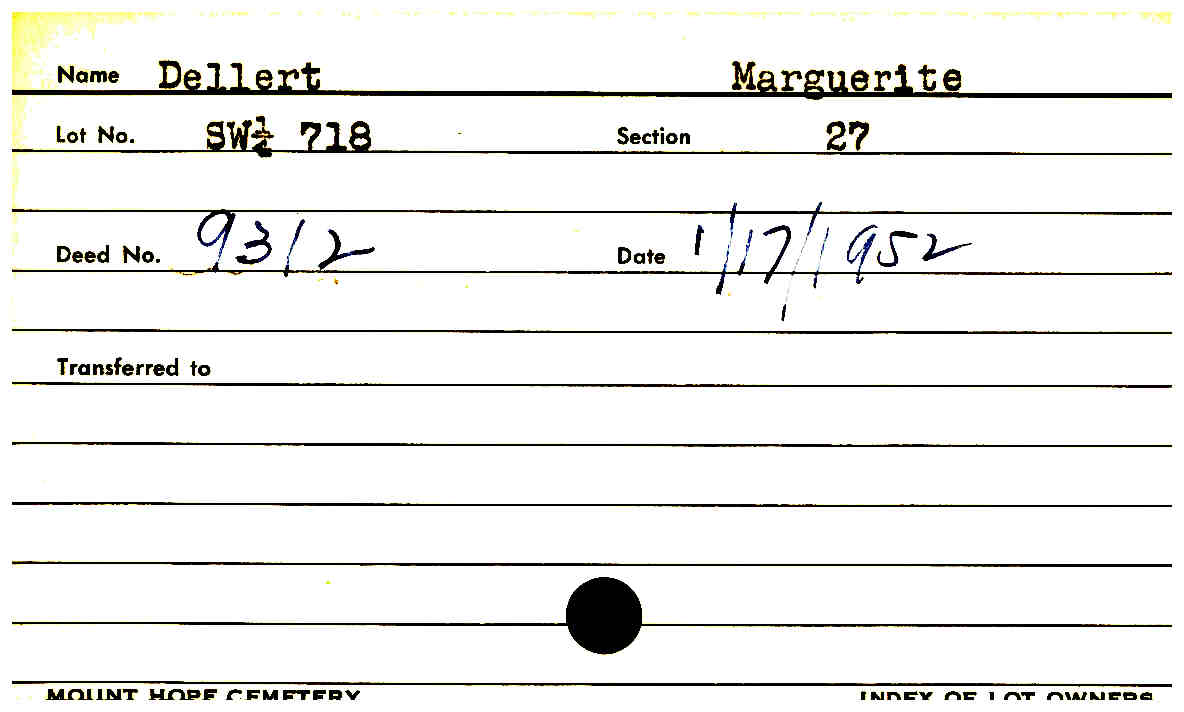 Name Dellert Marguerite
Lot No. SW½ 718 Section 27
Deed No. 9312 Date 1/17/1952
Transferred to
MOUNT HOPE CEMETERY INDEX OF LOT OWNERS